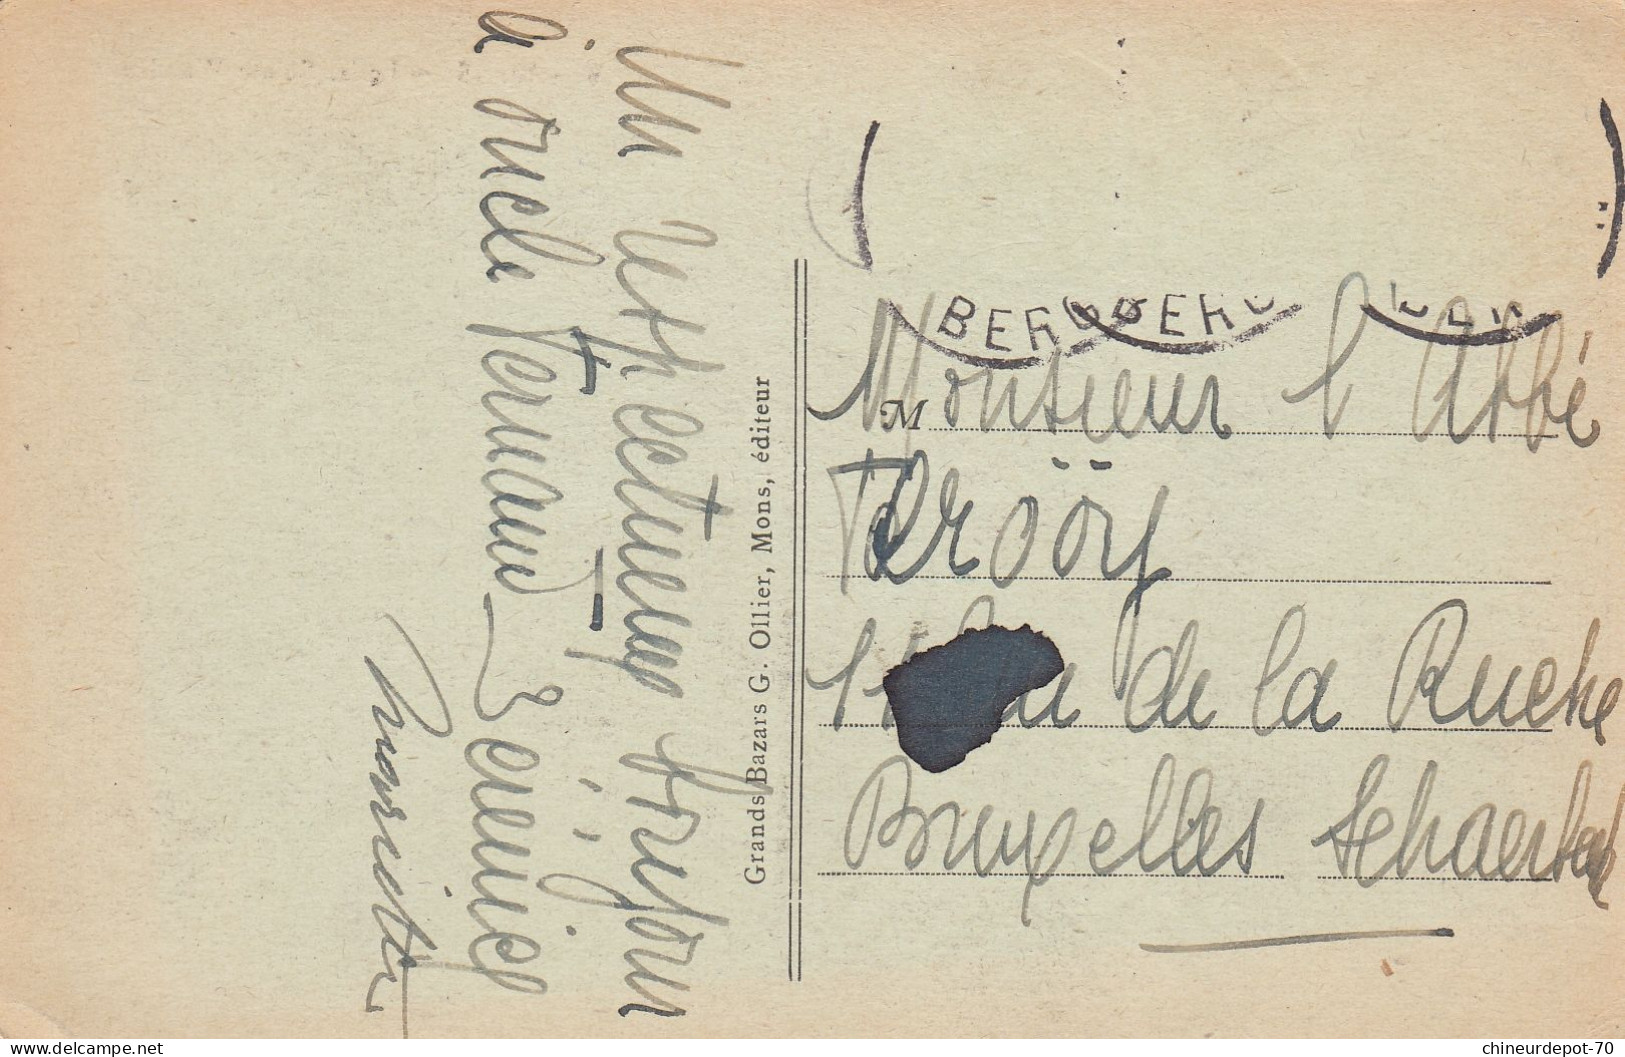 Un respectueux bonjour
à oncle Fernand
Marietta
Grands Bazars G. Ollier, Mons, éditeur
BERG BERG
M
Monsieur l'Abbé
de la Ruche
Bruxelles Schaerbeek
delcampe.net
chineurdepot-70